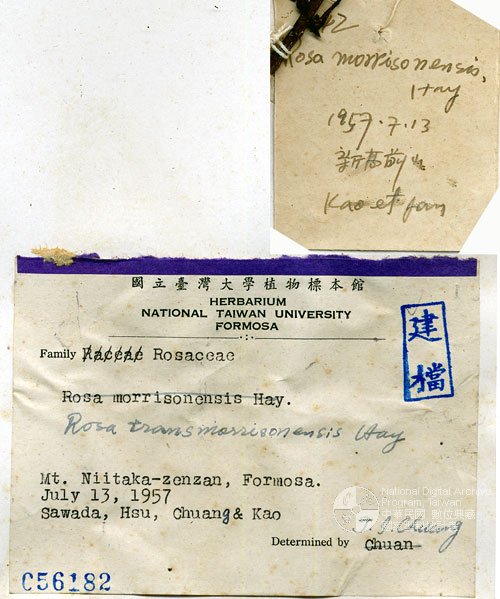 Rosa morrisonensis,
Hay
1957.7.13
新高前山
Kao et
國立臺灣大學植物標本館
HERBARIUM
NATIONAL TAIWAN UNIVERSITY
FORMOSA
Family Rosaceae
建檔
Rosa morrisonensis Hay.
Rosa transmorrisonensis Hay
Mt. Niitaka-zenzan, Formosa.
July 13, 1957
Sawada, Hsu, Chuang & Kao
National Digital Archives
Program, Taiwan
中華民國 數位典藏
T. I. Chuang
Determined by Chuan
C56182